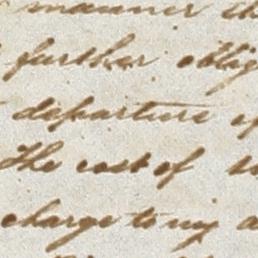 manner th
further oblig
departure of
The cost of
charge to my a